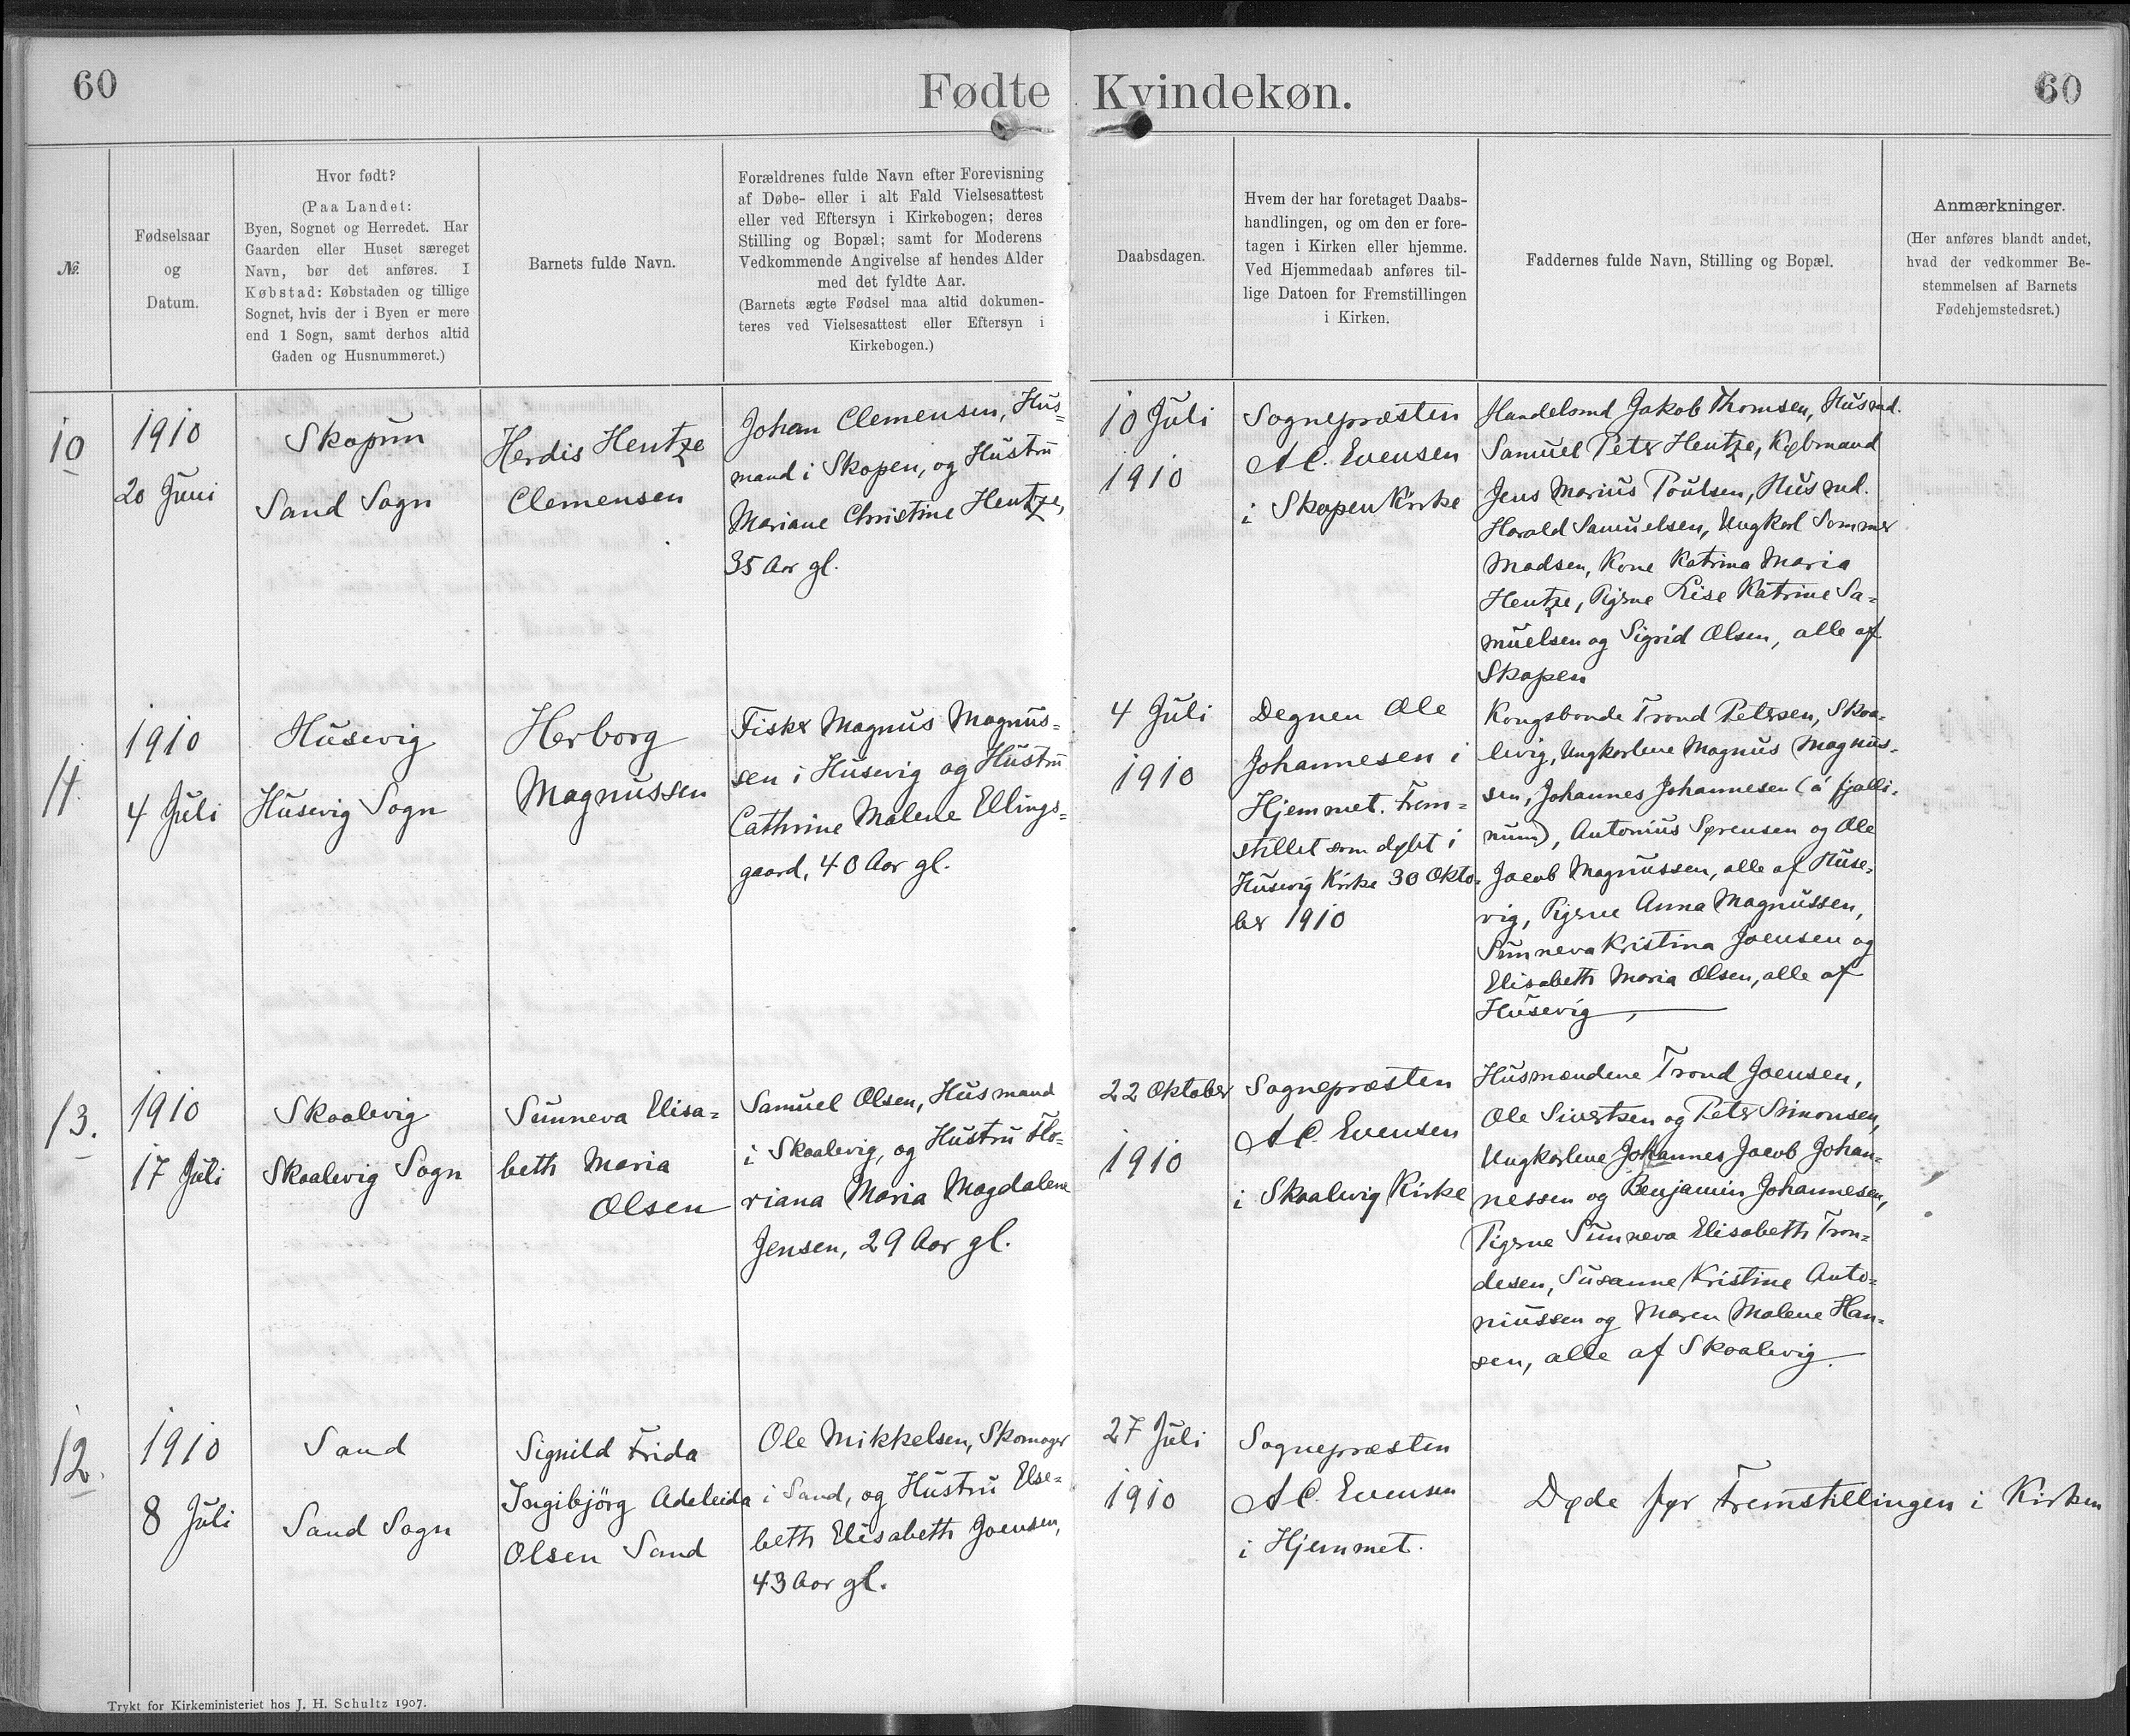 60
Fødte
Kvindekøn.
60
№
Fødselsaar
og
Datum.
Hvor født?
(Paa Landet:
Byen, Sognet og Herredet. Har
Gaarden eller Huset særeget
Navn, bør det anføres. I
Købstad: Købstaden og tillige
Sognet, hvis der i Byen er mere
end 1 Sogn, samt derhos altid
Gaden og Husnummeret.)
Barnets fulde Navn.
Forældrenes fulde Navn efter Forevisning
af Døbe- eller i alt Fald Vielsesattest
eller ved Eftersyn i Kirkebogen; deres
Stilling og Bopæl; samt for Moderens
Vedkommende Angivelse af hendes Alder
med det fyldte Aar.
(Barnets ægte Fødsel maa altid dokumen-
teres ved Vielsesattest eller Eftersyn i
Kirkebogen.)
Daabsdagen.
Hvem der har foretaget Daabs-
handlingen, og om den er fore-
tagen i Kirken eller hjemme.
Ved Hjemmedaab anføres til-
lige Datoen for Fremstillingen
i Kirken.
Faddernes fulde Navn, Stilling og Bopæl.
Anmærkninger.
(Her anføres blandt andet,
hvad der vedkommer Be-
stemmelsen af Barnets
Fødehjemstedsret.)
10
1910
20 Juni
Skopun
Sand Sogn
Herdis Hentze
Clemensen
Johan Clemensen, Hus=
mand i Skopen, og Hustru
Mariane Christine Hentze,
35 Aar gl.
10 Juli
1910
Sognepræsten
A C. Evensen
i Skopen Kirke
Handelsmd Jakob Thomsen, Husmd.
Samuel Peter Hentze, Købmand
Jens Marius Poulsen, Husmd.
Harald Samuelsen, Ungkarl Sommer
Madsen, Kone Katrina Maria
Hentze, Pigerne Lise Katrine Sa=
muelsen og Sigrid Olsen, alle af
Skopen
11.
1910
4 Juli
Husevig
Husevig Sogn
Herborg
Magnussen
Fisker Magnus Magnus=
sen i Husevig og Hustru
Cathrine Malene Ellings=
gaard, 40 Aar gl.
4 Juli
1910
Degnen Ole
Johannesen i
Hjemmet. Frem=
stillet som døbt i
Husevig Kirke 30 Okto=
ber 1910
Kongsbonde Trond Petersen, Skaa=
levig, Ungkarlene Magnus Magnus=
sen, Johannes Johannesen (á fjalli=
num), Antonius Sørensen og Ole
Jacob Magnussen, alle af Huse=
vig, Pigerne Anna Magnussen,
Sunneva Kristina Joensen og
Elisabeth Maria Olsen, alle af
Husevig,
13.
1910
17 Juli
Skaalevig
Skaalevig Sogn
Sunneva Elisa=
beth Maria
Olsen
Samuel Olsen, Husmand
i Skaalevig, og Hustru Flo=
riana Maria Magdalene
Jensen, 29 Aar gl.
22 Oktober
1910
Sognepræsten
A C. Evensen
i Skaalevig Kirke
Husmændene Trond Joensen,
Ole Sivertsen og Peter Simonsen,
Ungkarlene Johannes Jacob Johan=
nessen og Benjamin Johannesen,
Pigerne Sunneva Elisabeth Tron=
desen, Susanne Kristine Anto=
niussen og Maren Malene Han=
sen, alle af Skaalevig.
12.
1910
8 Juli
Sand
Sand Sogn
Signild Frida
Ingibjörg Adeleida
Olsen Sand
Ole Mikkelsen, Skomager
i Sand, og Hustru Else=
beth Elisabeth Joensen,
43 Aar gl.
27 Juli
1910
Sognepræsten
A C. Evensen
i Hjemmet.
Døde før Fremstillingen i Kirken
Trykt for Kirkeministeriet hos J. H. Schultz 1907.